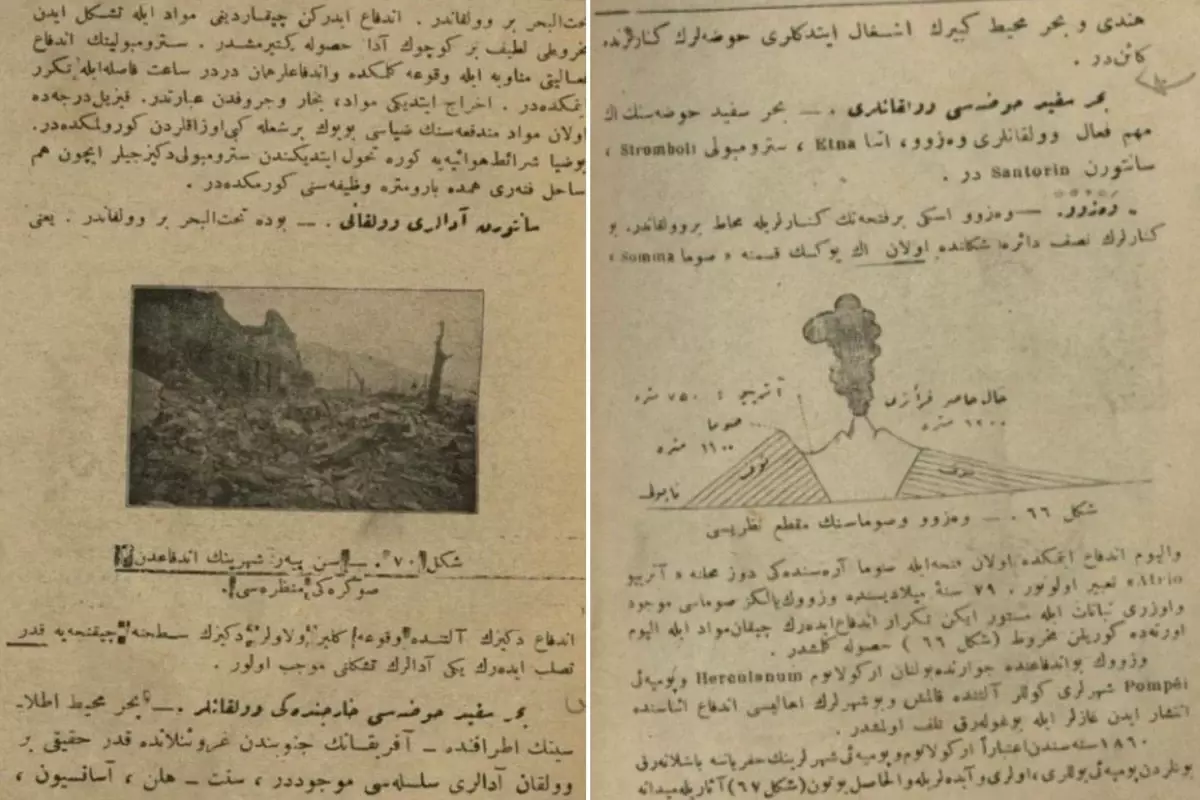 هندی و بحر محیط کبیرك اشغال ایتدکلری حوضه‌لرك کنارلرنده
کائن‌در .
بحر سفید حوضه‌سی وولقانلری . — بحر سفید حوضه‌سنك اك
مهم فعال وولقانلری وه‌زوو، اتنا Etna ، سترومبولی Stromboli ،
سانتورن Santorin در .
وه‌زوو. — وه‌زوو اسکی برفتحه‌نك کنارلریله محاط بروولقاندر. بو
کنارلرك نصف دائره شکلنده اولان اك یوکسك قسمنه « صوما Somma »
آتریو : ٧٥٠ متره
حال حاضر قراتری
١٢٠٠ متره
صوما
١١٠٠ متره
توف
توف
ناپولی
شکل ٦٦ . — وه‌زوو وصوماسنك مقطع نظریسی
والیوم اندفاع ایتمکده اولان فتحه‌ایله صوما آره‌سنده‌کی دوز محله « آتریو
Atrio» تعبیر اولونور . ٧٩ سنهٔ میلادیسنده وزووك یالکز صوماسی موجود
واوزری نباتات ایله مستور ایکن تکرار اندفاع‌ایده‌رك چیقان‌مواد ایله الیوم
اورته‌ده کوریلن مخروط (شکل ٦٦ ) حصوله کلمشدر .
وزووك بواندفاعنده جوارنده‌بولنان ارکولانوم Herculanum وپومپه‌ئی
Pompéi شهرلری کوللر آلتنده قالمش وبوشهرلرك اهالیسی اندفاع اثناسنده
انتشار ایدن غازلر ایله بوغوله‌رق تلف اولمشدر .
١٨٦٠ سنه‌سندن‌اعتباراً ارکولانوم‌وپومپه‌ئی شهرلرینك‌حفریاتنه باشلانه‌رق
بونلردن‌پومپه‌ئی‌یوللری، اولری‌وآبده‌لریله‌والحاصل‌بوتون(شکل ٦٧)آثاریله‌میدانه
تحت‌البحر بر وولقاندر . اندفاع ایدرکن چیقاردینی مواد ایله تشکل ایدن
مخروطی لطیف بر کوچوك آدا حصوله کتیرمشدر . سترومبولینك اندفاع
فعالیتی مناوبه ایله وقوعه کلمکده واندفاعلرهمان دردر ساعت فاصله‌ایله تکرر
ایتمکده‌در . اخراج ایتدیکی مواد، بخار وجروفدن عبارتدر. قیزیل‌درجه‌ده
اولان مواد مندفعه‌سنك ضیاسی بویوك برشعله کبی‌اوزاقلردن کورولمکده‌در.
بوضیا شرائط‌هوائیه‌یه کوره تحول ایتدیکندن سترومبولی‌دکیزجیلر ایچون هم
ساحل فنه‌ری همده بارومتره وظیفه‌سنی کورمکده‌در .
سانتورن آدالری وولقانی . — بوده تحت‌البحر بر وولقاندر . یعنی
شکل ٧٠ . — سن پیه‌ر شهرینك اندفاعدن
صوکره‌کی منظره‌سی .
اندفاع دکیزك آلتنده وقوعه کلیر ولاولر دکیزك سطحنه چیقنجه‌یه قدر
تصلب ایده‌رك یکی آدالرك تشکلنی موجب اولور .
بحر سفید حوضه‌سی خارجنده‌کی وولقانلر . — بحر محیط اطلا-
سینك اطرافنده - آفریقانك جنوبندن غروئنلانده قدر حقیقی بر
وولقان آدالری سلسله‌سی موجوددر ، سنت - هلن ، آسانسیون ،